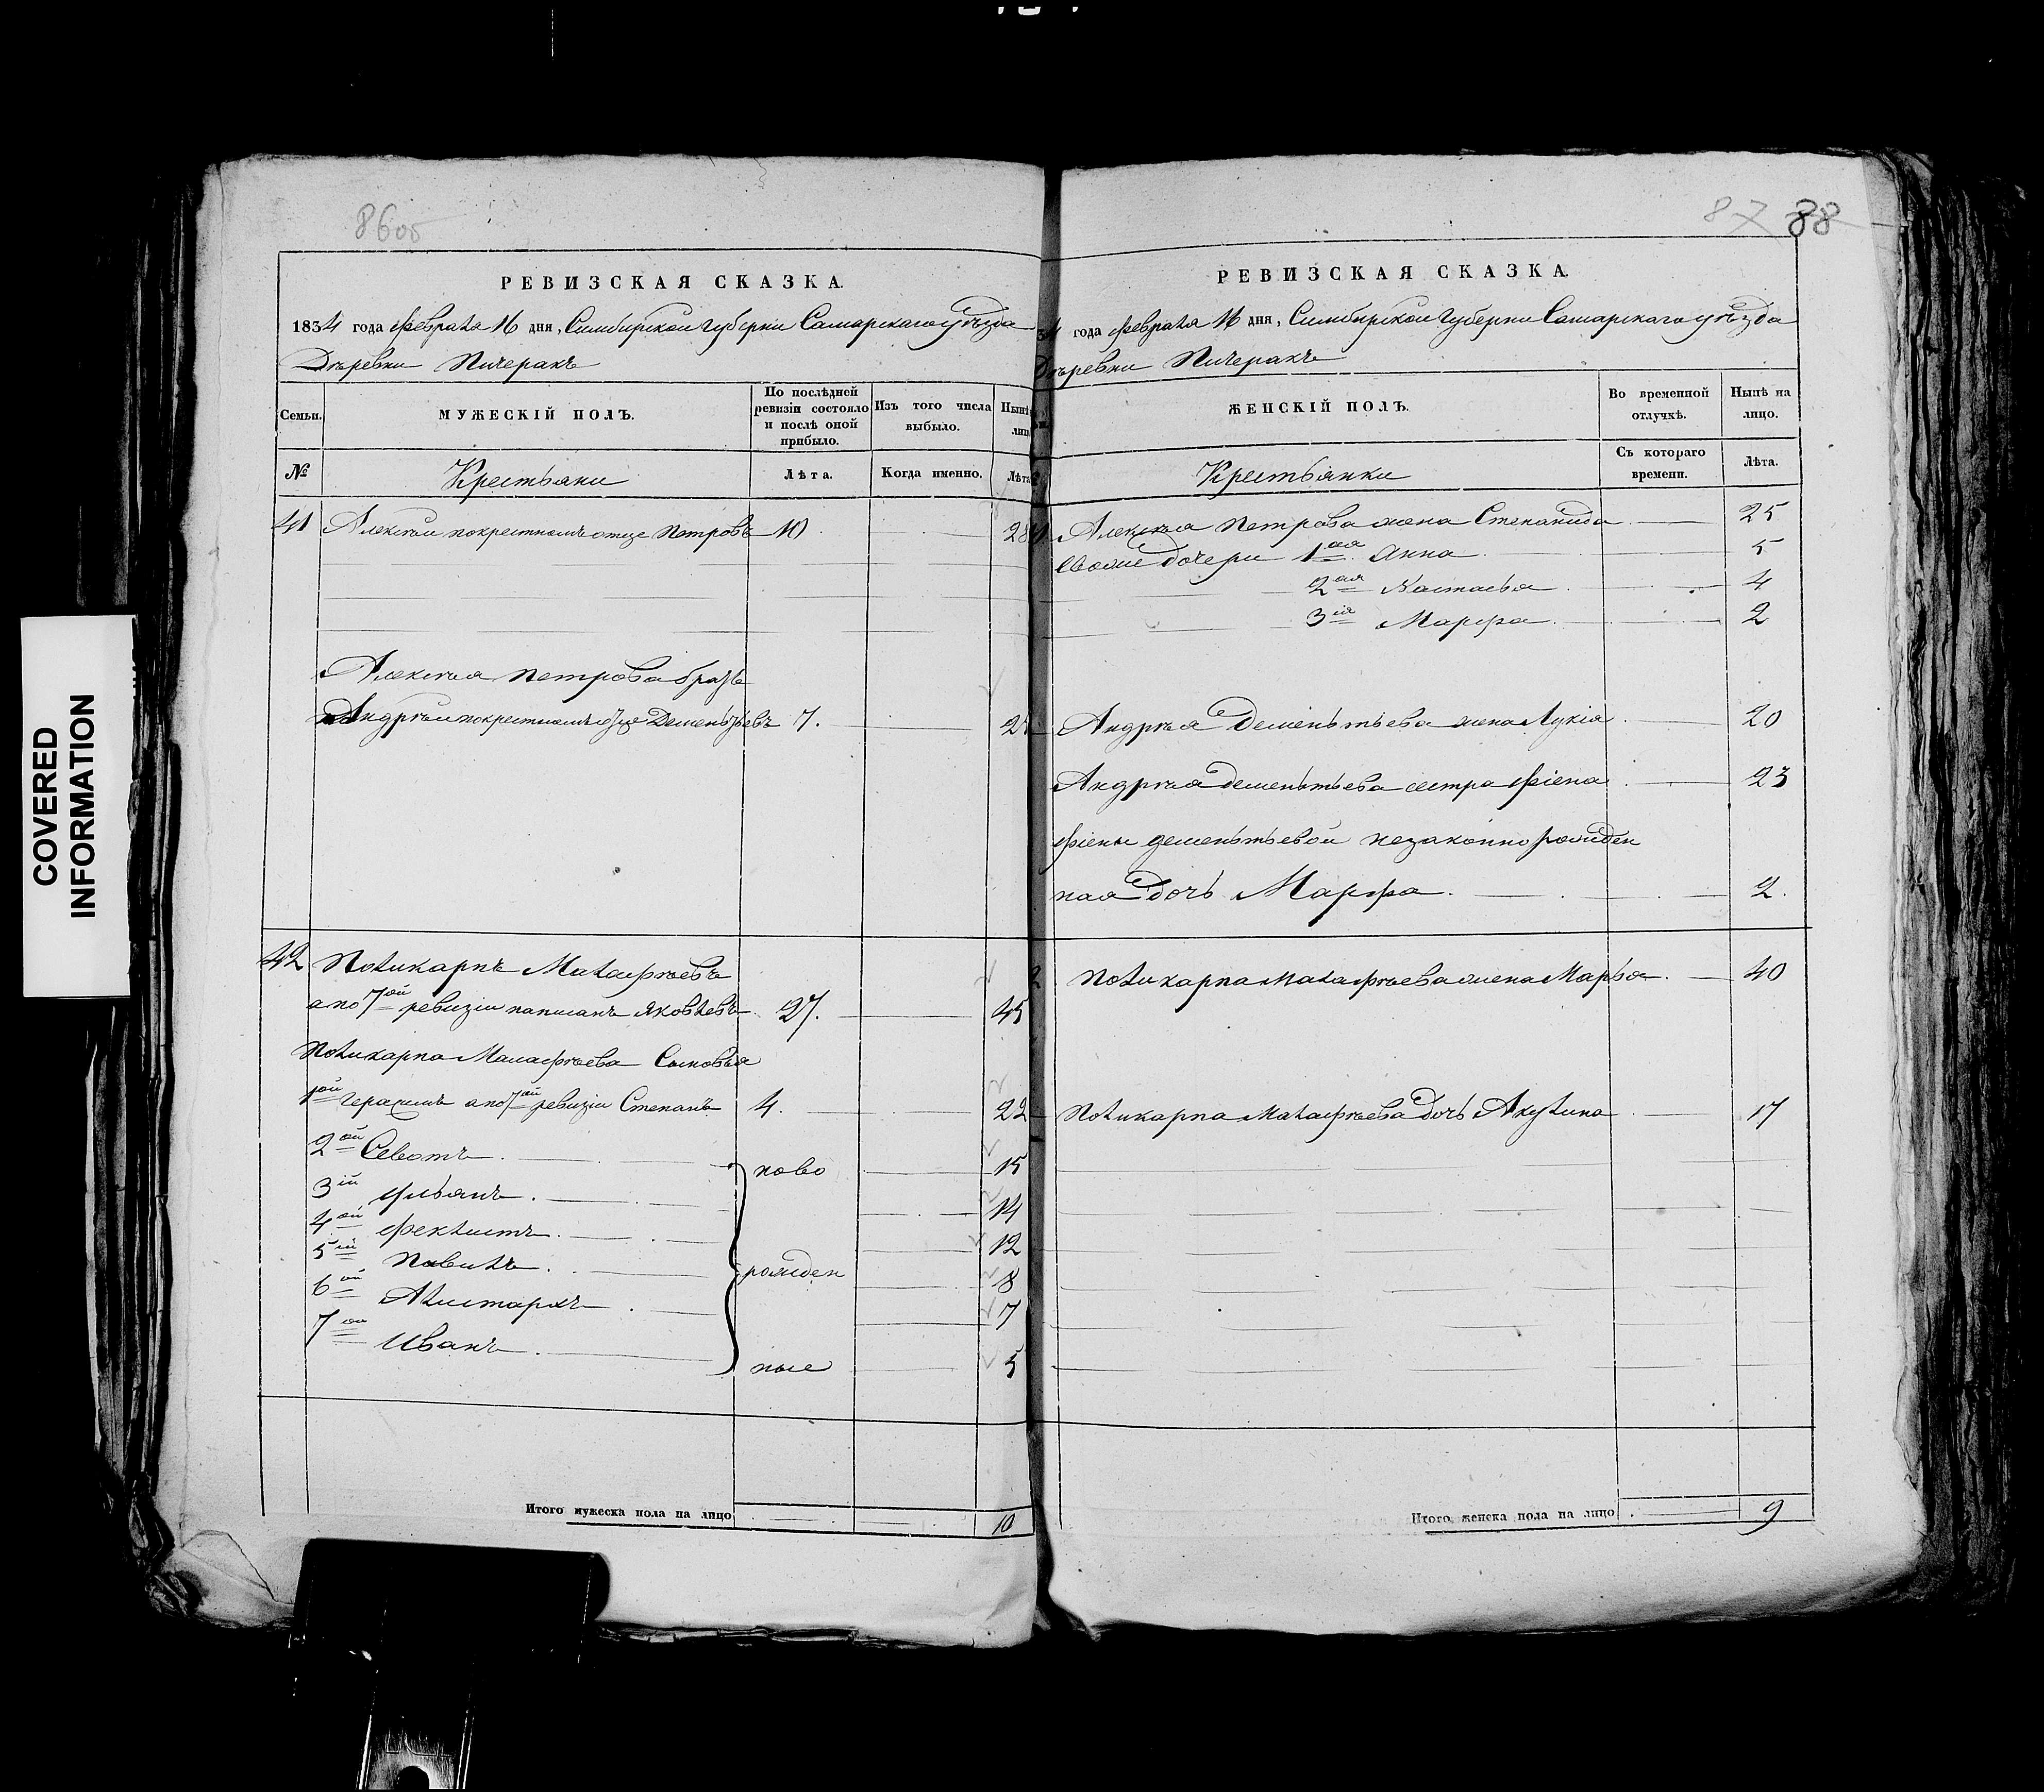 86об
РЕВИЗСКАЯ СКАЗКА.
1834 года Февраля 16 дня, Симбирской Губерни Самарскаго уѣзда
Дѣревни Пичеракъ
Семьи.
МУЖЕСКІЙ ПОЛЪ.
По послѣдней ревизіи состояло и послѣ оной прибыло.
Изъ того числа выбыло.
Нынѣ лиц
№
Крестьяни
Лѣта.
Когда именно.
Лѣта
41 Алексѣй покрестномъ отце Петровъ 10. 28
Алексѣя Петрова братъ
Андрѣй покрестномъ отце Дементьевъ 7. 2
42 Поликарпъ Малафѣевъ
а по 7ой ревизіи написанъ Яковлевъ 27. 45
Поликарпа Малафѣева Сыновья
1ой Герасимъ а по 7ой ревизіи Степанъ 4. 22
2ой Севотъ. ново 15
3ій Ульянъ. 14
4ой Феклистъ. 12
5ій Павилъ. рожден 8
6ой Алистархъ. 7
7ой Иванъ. ные 5
Итого мужеска пола на лицо 10
87 88
РЕВИЗСКАЯ СКАЗКА.
34 года Февраля 16 дня, Симбирской Губерни Самарскаго уѣзда
Дѣревни Пичеракъ
ЖЕНСКІЙ ПОЛЪ.
Во временной отлучкѣ.
Нынѣ на лицо.
Крестьянки
Съ котораго времени.
Лѣта.
Алексѣя Петрова жена Степанида 25
Ево же дочери 1ая Анна 5
2ая Настасья 4
3ія Марфа 2
Андрѣя Дементьева жена Лукія 20
Андрѣя Дементьева сестра Фіена 23
Фіены Дементьевой незаконно рожден
ная дочь Марфа. 2.
2 Поликарпа Малафѣева жена Марфа. 40
Поликарпа Малафѣева дочь Акулина 17
Итого женска пола на лицо 9
COVERED
INFORMATION